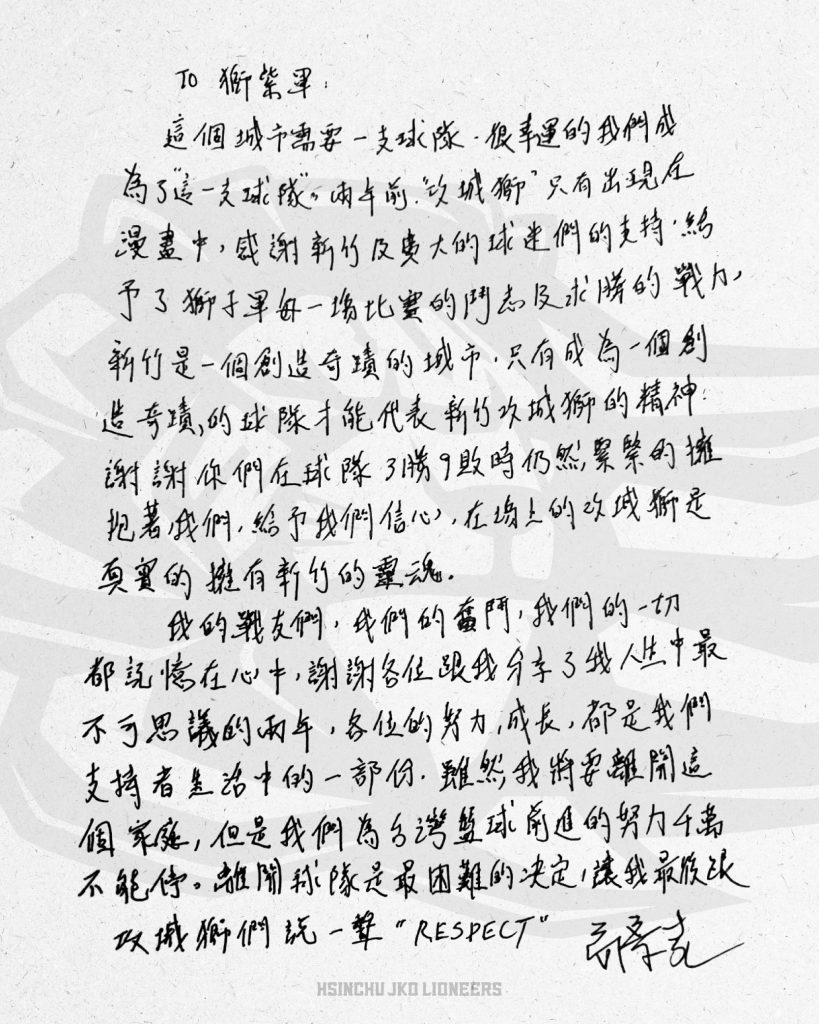 TO 獅紫軍:
這個城市需要一支球隊.很幸運的我們成
為了"這一支球隊"。兩年前."攻城獅"只有出現在
漫畫中,感謝新竹及廣大的球迷們的支持.給
予了獅子軍每一場比賽的鬥志及求勝的戰力,
新竹是一個創造奇蹟的城市.只有成為一個創
造奇蹟,的球隊才能代表新竹攻城獅的精神.
謝謝你們在球隊3勝9敗時仍然,緊緊的擁
抱著我們,給予我們信心,在場上的攻城獅是
真實的擁有新竹的靈魂.
我的戰友們,我們的奮鬥,我們的一切
都記憶在心中,謝謝各位跟我分享了我人生中最
不可思議的兩年,各位的努力,成長,都是我們
支持者生活中的一部份.雖然,我將要離開這
個家庭,但是我們為台灣籃球前進的努力千萬
不能停。離開球隊是最困難的決定,讓我最後跟
攻城獅們說一聲"RESPECT"
HSINCHU JKO LIONEERS